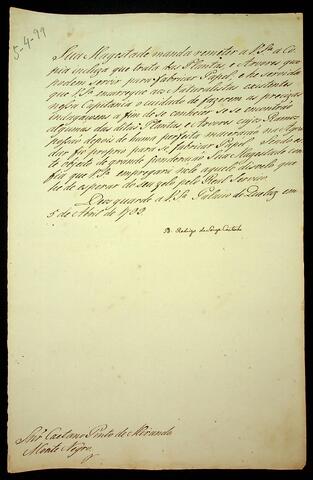 5-4-99
Sua Magestade manda remeter a V.Sª a Co-
pia incluza que trata das Plantas, e Arvores que
podem servir para fabricar Papel, e he servida
que V.Sª encarregue aos Naturalistas existentes
nessa Capitania o cuidado de fazerem as precizas
indagaçoens a fim de se conhecer se se encontrão
algumas das ditas Plantas e Arvores cujos Ramos
possão depois de huma perfeita maceração na Agoa
dar fio proprio para se fabricar Papel. Sendo es-
te objecto de grande ponderação Sua Magestade con-
fia que V.Sª empregará nelle aquelle disvelo que
he de esperar do seu zelo pelo Real Serviço.
Deos guarde a V.Sª Palacio de Queluz em
5 de Abril de 1799
D. Rodrigo de Souza Coutinho
Snr Caetano Pinto de Miranda
Monte Negro